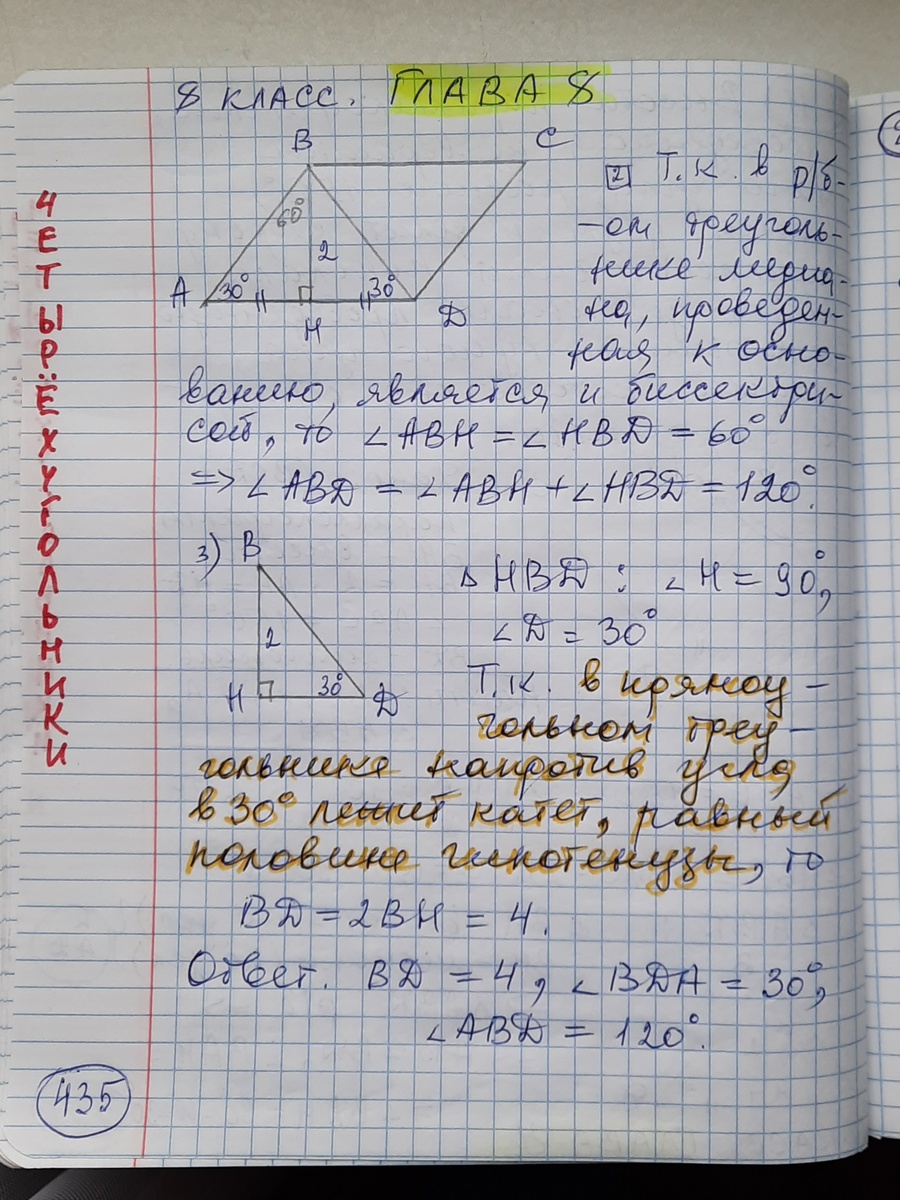 8 КЛАСС. ГЛАВА 8
ЧЕТЫРЁХУГОЛЬНИКИ
B C
60°
2
A 30° 30°
H D
2 Т.к. в р/б-
-ом треуголь-
нике медиа-
на, проведен-
ная к осно-
ванию, является и биссектри-
сой, то ∠ABH = ∠HBD = 60°
=> ∠ABD = ∠ABH + ∠HBD = 120°.
3) B
2
H 30° D
△ HBD : ∠H = 90°,
∠D = 30°
Т.к. в прямоу-
гольном треу-
гольнике напротив угла
в 30° лежит катет, равный
половине гипотенузы, то
BD = 2BH = 4.
Ответ. BD = 4, ∠BDA = 30°,
∠ABD = 120°.
435